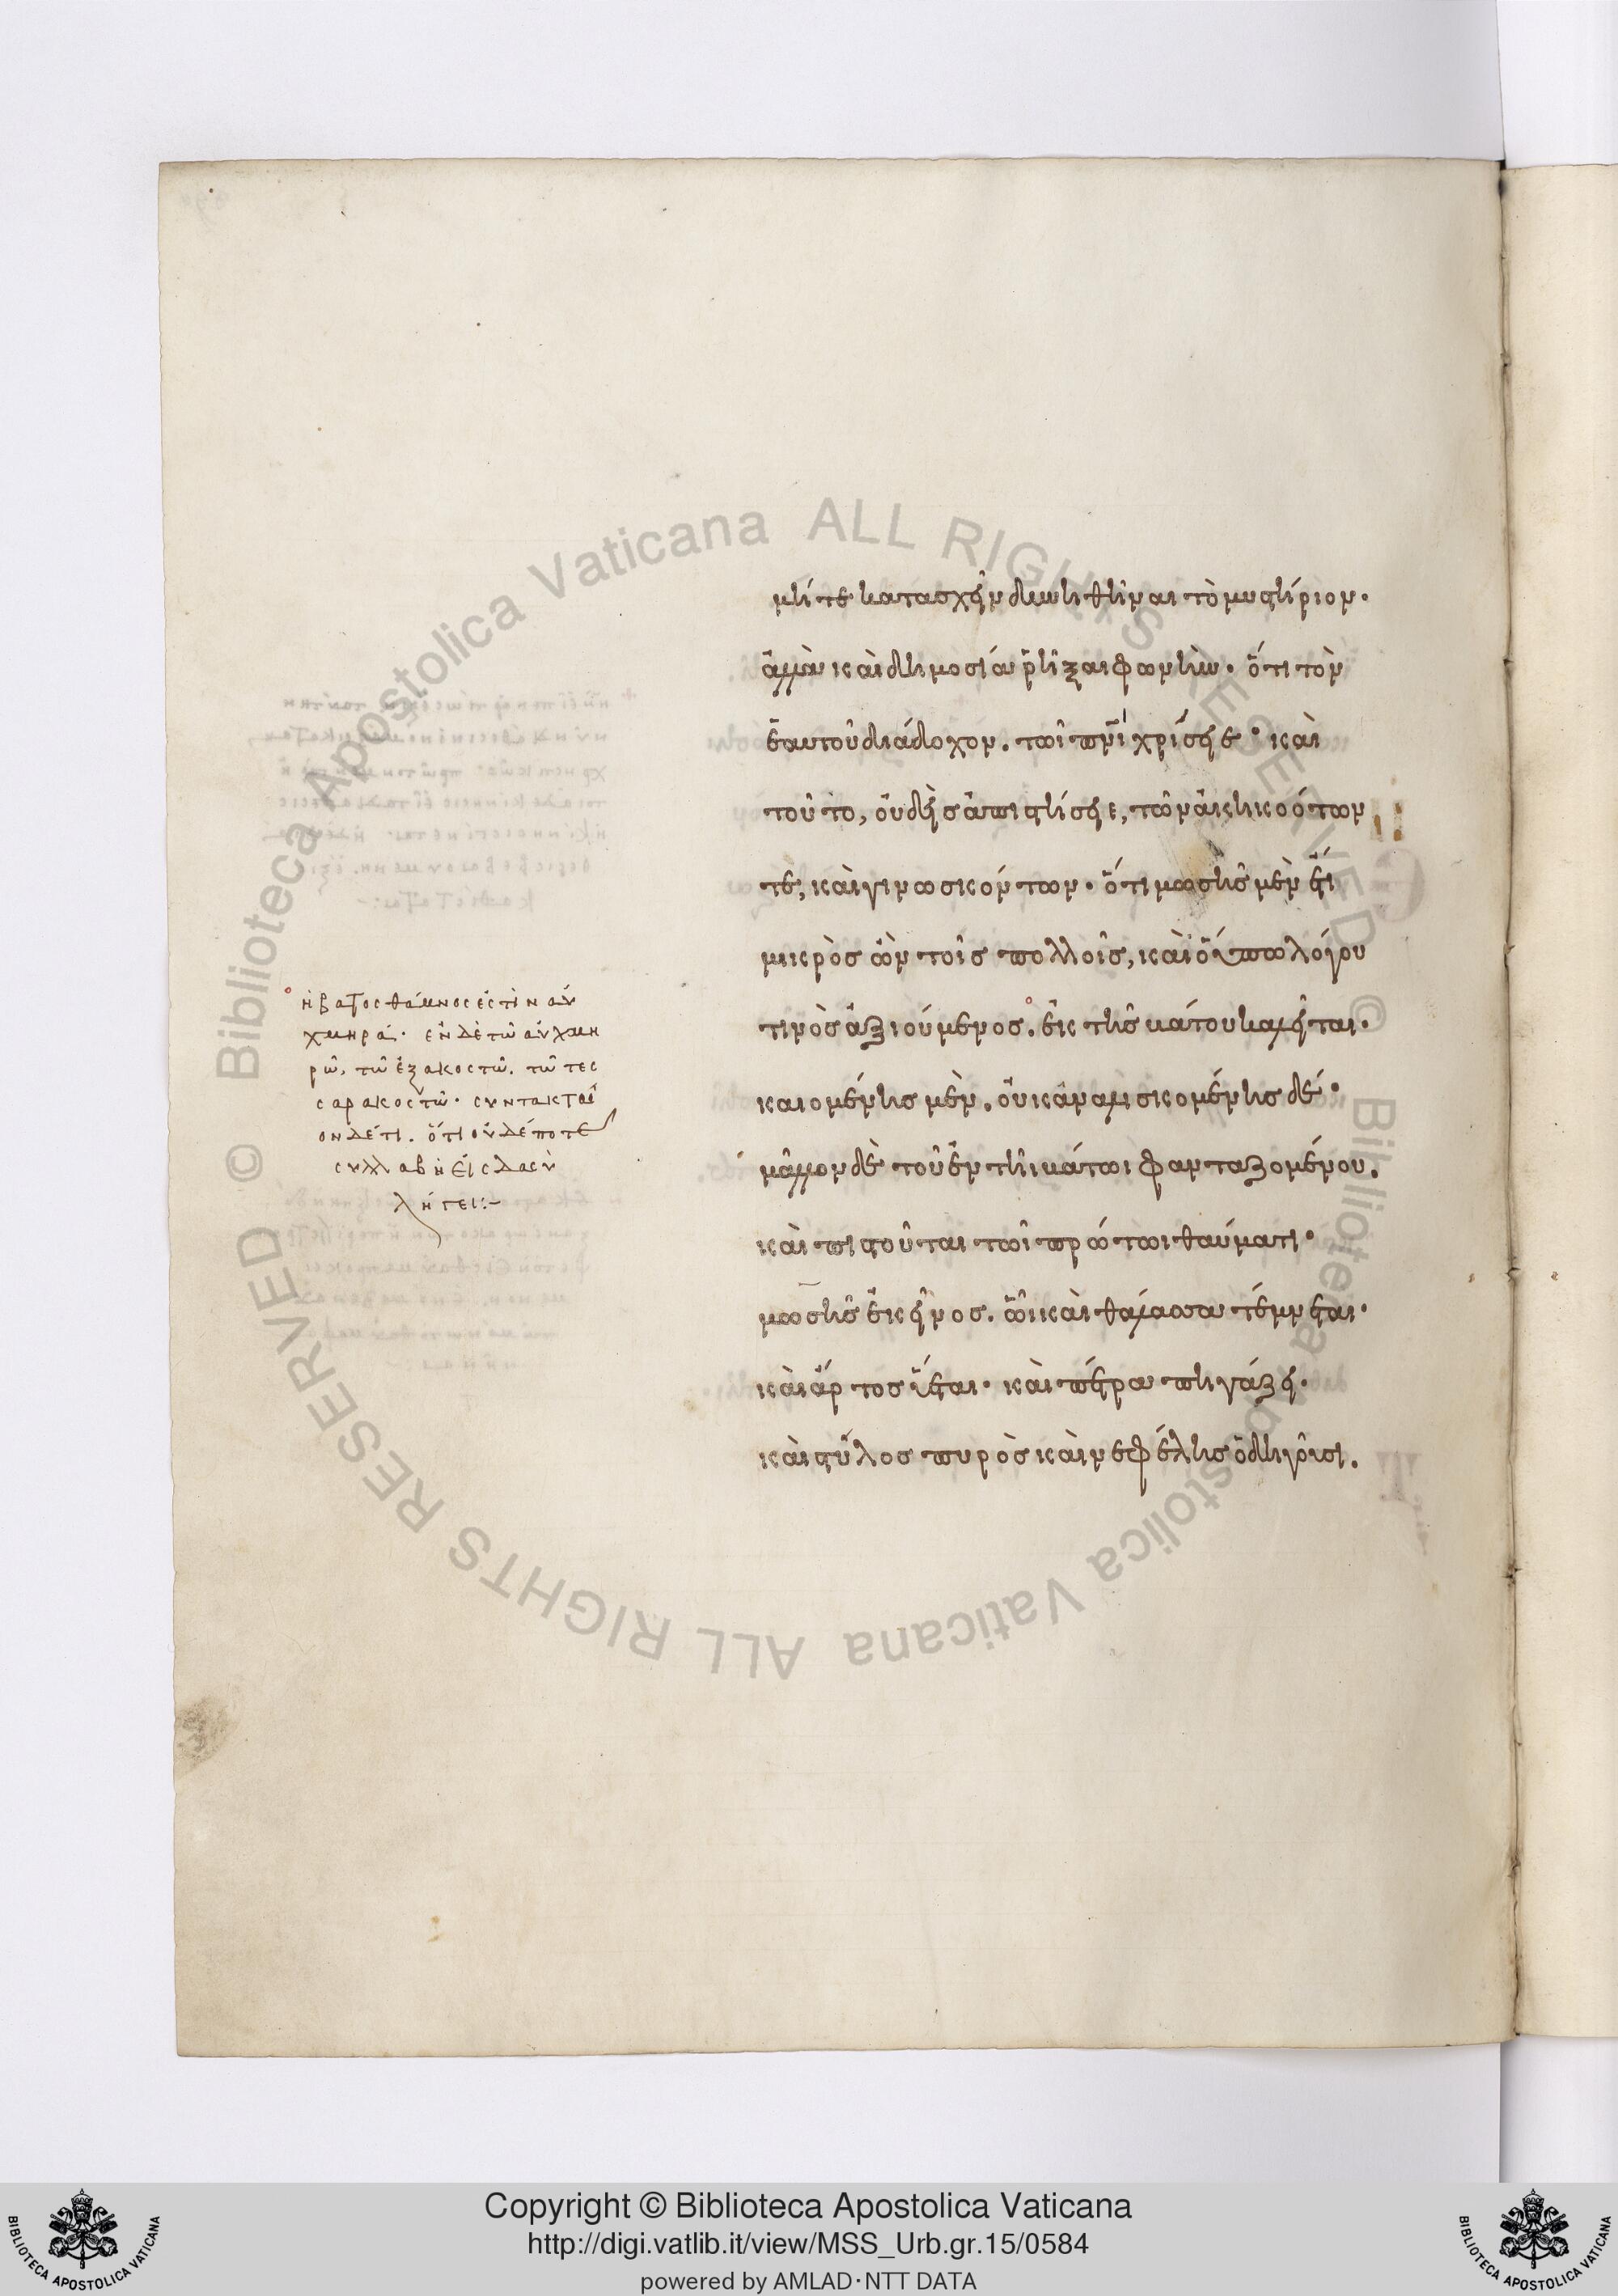 μήτε κατασχεῖν δυνηθῆναι τὸ μυστήριον·
ἀλλὰ καὶ δημοσίαν ῥῆξαι φωνὴν· ὅτι τὸν
ἑαυτοῦ διάδοχον. τῶι πρι χρίσειε· καὶ
τοῦτο, οὐδεὶς ἀπιστήσειε, τῶν ἀκηκοότων
τὲ, καὶ γινωσκόντων· ὅτι μωσῆς μὲν ἔτι
μικρὸς ὢν τοῖς πολλοῖς, καὶ οὔπω λόγου
τινὸς ἀξιούμενος. ἐκ τῆς βάτου καλεῖται·
καιομένης μὲν. οὐκ ἀναλισκομένης δέ·
μᾶλλον δὲ τοῦ ἐν τῆι βάτωι φανταζομένου.
καὶ πιστοῦται τῶι πρώτωι θαύματι·
μωσῆς ἐκεῖνος. ὧι καὶ θάλασσα τέμνεται·
καὶ ἄρτος ὕεται· καὶ πέτρα πηγάζει·
καὶ στύλος πυρὸς καὶ νεφέλης ὁδηγοῦσι.
ἡ βάτος θάμνος ἐστὶν αὐ
χμηρά· ἐν δὲ τῶ αὐχμη
ρῶ, τῶ ἑξακοστῶ. τῶ τες
σαρακοστῶ· συντακτ
ον δέ τι. ὅτι οὐδέποτε
συλλαβὴ εἰς
λήγει:~
Copyright © Biblioteca Apostolica Vaticana
http://digi.vatlib.it/view/MSS_Urb.gr.15/0584
powered by AMLAD·NTT DATA
BIBLIOTECA APOSTOLICA VATICANA
BIBLIOTECA APOSTOLICA VATICANA
© Biblioteca Apostolica Vaticana ALL RIGHTS RESERVED
© Biblioteca Apostolica Vaticana ALL RIGHTS RESERVED